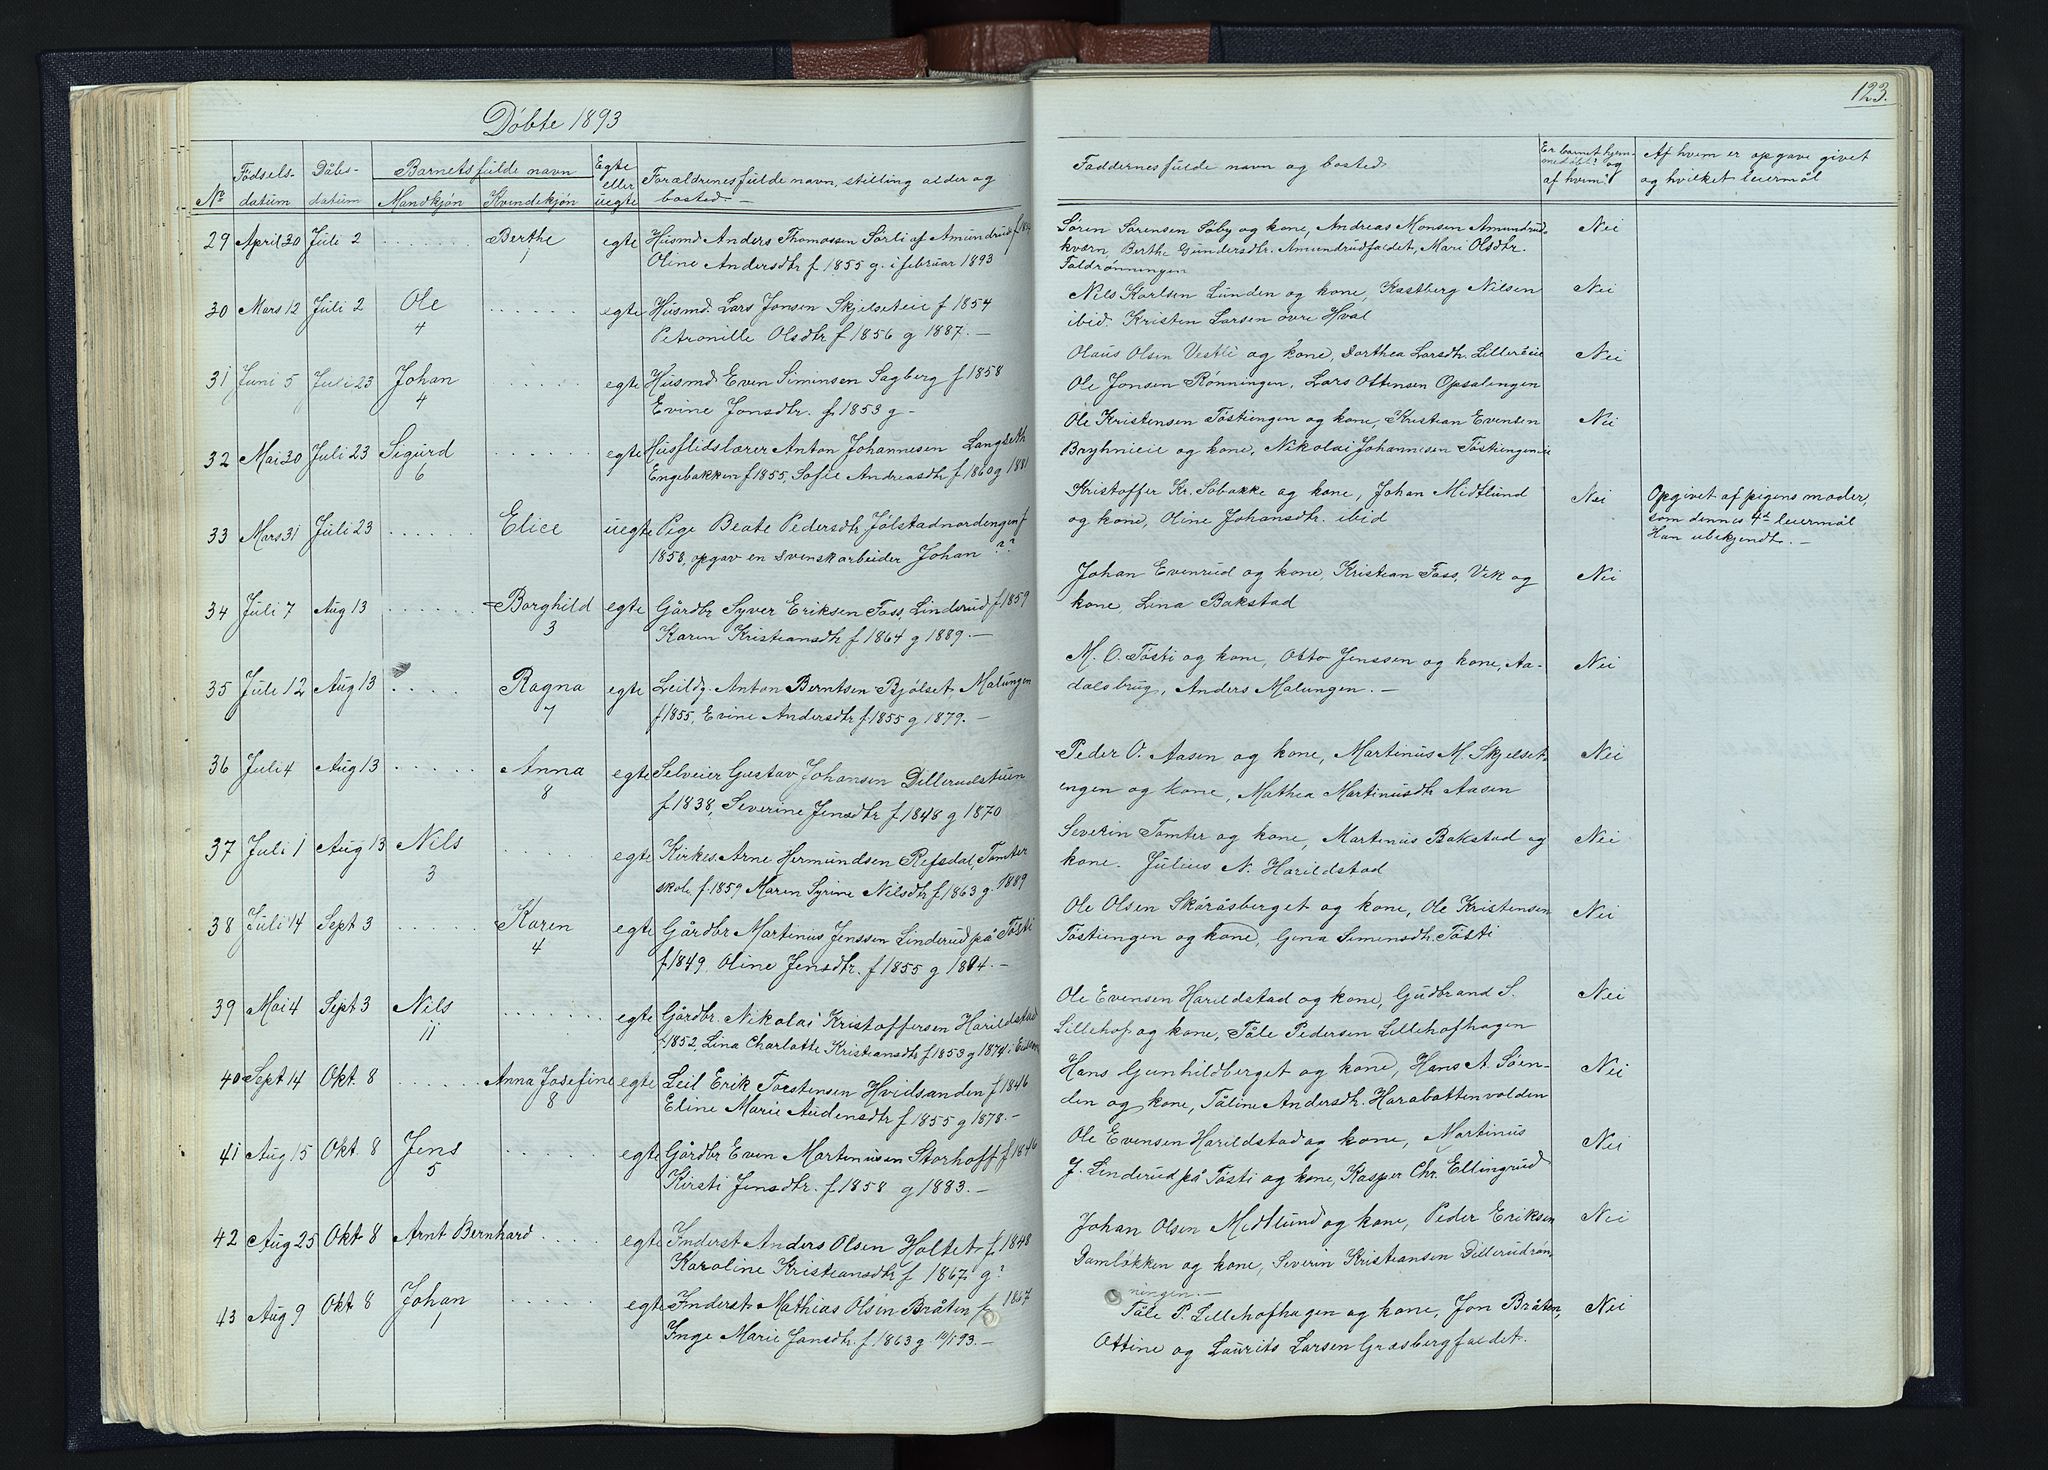 Döbte 1893
Nº
Fødsels-
datum
Dåbs-
datum
Barnets fulde navn
Mandkjön
Kvindekjön
Egte
eller
uegte
Forældrenes fulde navn, stilling alder og
bosted.
29 April 30 Juli 2 Berthe egte Husmd Anders Thomassen Sörli af Amundrud
1
Oline Andersdtr f 1855 g. i februar 1893
30 Mars 12 Juli 2 Ole egte Husmd. Lars Jonsen Skjelseteie f 1854
4
Petronille Olsdtr f 1856 g 1887. —
31 Juni 5 Juli 23 Johan egte Husmd Even Simensen Sagberg f 1858
4
Evine Jonsdtr. f 1853 g -
32 Mai 30 Juli 23 Sigurd egte Husflidslærer Anton Johannesen Langseth
6
Engebakken f 1855, Sofie Andreasdtr f 1860 g 1881
33 Mars 31 Juli 23 Elice uegte Pige Beate Pedersdtr Jølstadnordengen f
1858, opgav en svensk arbeider Johan ??
34 Juli 7 Aug 13 Borghild egte Gårdbr Syver Eriksen Fass, Linderud f 1859
3
Karen Kristiansdtr f 1864 g 1889. —
35 Juli 12 Aug 13 Ragna egte Leildg. Anton Berntsen Bjölset Malungen
7
f 1855, Evine Andersdtr f 1855 g 1879. —
36 Juli 4 Aug 13 Anna egte Selveier Gustav Johansen Dillerudstuen
8
f 1838, Severine Jensdtr f 1848 g 1870
37 Juli 1 Aug 13 Nils egte Kirkes. Arne Hermundsen Refsdal, Tomter
3
skole f. 1859 Maren Syrine Nilsdtr f 1863 g. 1889
38 Juli 14 Sept 3 Karen egte Gårdbr Martinus Jenssen Linderud på Tösti
4
f 1849, Oline Jensdtr. f 1855 g 1884. —
39 Mai 4 Sept 3 Nils egte Gårdbr. Nikolai Kristoffersen Harildstad
11
f 1852, Lina Charlotte Kristiansdtr f 1853 g 1874 i
40 Sept 14 Okt 8 Anna Josefine egte Leil Erik Torstensen Hvidsanden f 1846
8
Eline Marie Audensdtr f 1855 g 1878. —
41 Aug 15 Okt 8 Jens egte Gårdbr Even Martinusen Storhoff f 1846
5
Kirsti Jensdtr. f 1858 g 1883. —
42 Aug 25 Okt 8 Arnt Bernhard egte Inderst Anders Olsen Holtet f. 1848
Karoline Kristiansdtr f 1867, g?
43 Aug 9 Okt 8 Johan egte Inderst Mathias Olsen Bråten f 1867
1
Inge Marie Jonsdtr. f 1863 g 93. —
123.
Faddernes fulde navn og bosted.
Er barnet hjem-
medøbt? og
af hvem?
Af hvem er opgave givet
og hvilket leiermål
Sören Sörensen Söby og kone, Andreas Monsen Amundrud- Nei
kværn, Berthe Gundersdtr. Amundrudfaldet, Mari Olsdtr.
Faldrønningen
Nils Karlsen Lunden og kone, Kastberg Nilsen Nei
ibid. Kristen Larsen övre Hval
Olaus Olsen Vestli og kone, Dorthea Larsdtr. Lilleröeie Nei
Ole Jonsen Rønningen, Lars Ottensen Opsalengen
Ole Kristensen Töstiengen og kone, Kristian Evensen Nei
Bryhnieie og kone, Nikolai Johannisen Töstiengeneie
Kristoffer Kr. Sobakke og kone, Johan Midtlund Nei
og kone, Oline Johansdtr. ibid
Opgivet af pigens moder,
som dennes 4de leiermål
Han ubekjendt. —
Johan Evenrud og kone, Kristian Fass, Vik og Nei
kone, Lina Bakstad
M. O. Tösti og kone, Otto Jenssen og kone, Aa- Nei
dalsbrug, Anders Malungen. —
Peder O. Aasen og kone, Martinus M. Skjelset- Nei
engen og kone, Mathea Martinusdtr Aasen
Severin Tomter og kone, Martinus Bakstad og Nei
kone. Julius N. Harildstad
Ole Olsen Skåråsberget og kone, Ole Kristensen Nei
Töstiengen og kone, Gina Simensdtr. Tösti
Ole Evensen Harildstad og kone, Gudbrand S. Nei
Lillehof og kone, Tåle Pedersen Lillehofhagen
Hans Gunhildberget og kone, Hans A. Söen- Nei
den og kone, Tåline Andersdtr. Harabattenvolden
Ole Evensen Harildstad og kone, Martinus Nei
J. Linderud på Tösti og kone, Kasper Chr. Ellingrud
Johan Olsen Midtlund og kone, Peder Eriksen Nei
Damlökken og kone, Severin Kristiansen Dillerudrön-
ningen. —
Tåle P. Lillehofhagen og kone, Jon Bråten, Nei
Ottine og Laurits Larsen Græsbergfaldet.